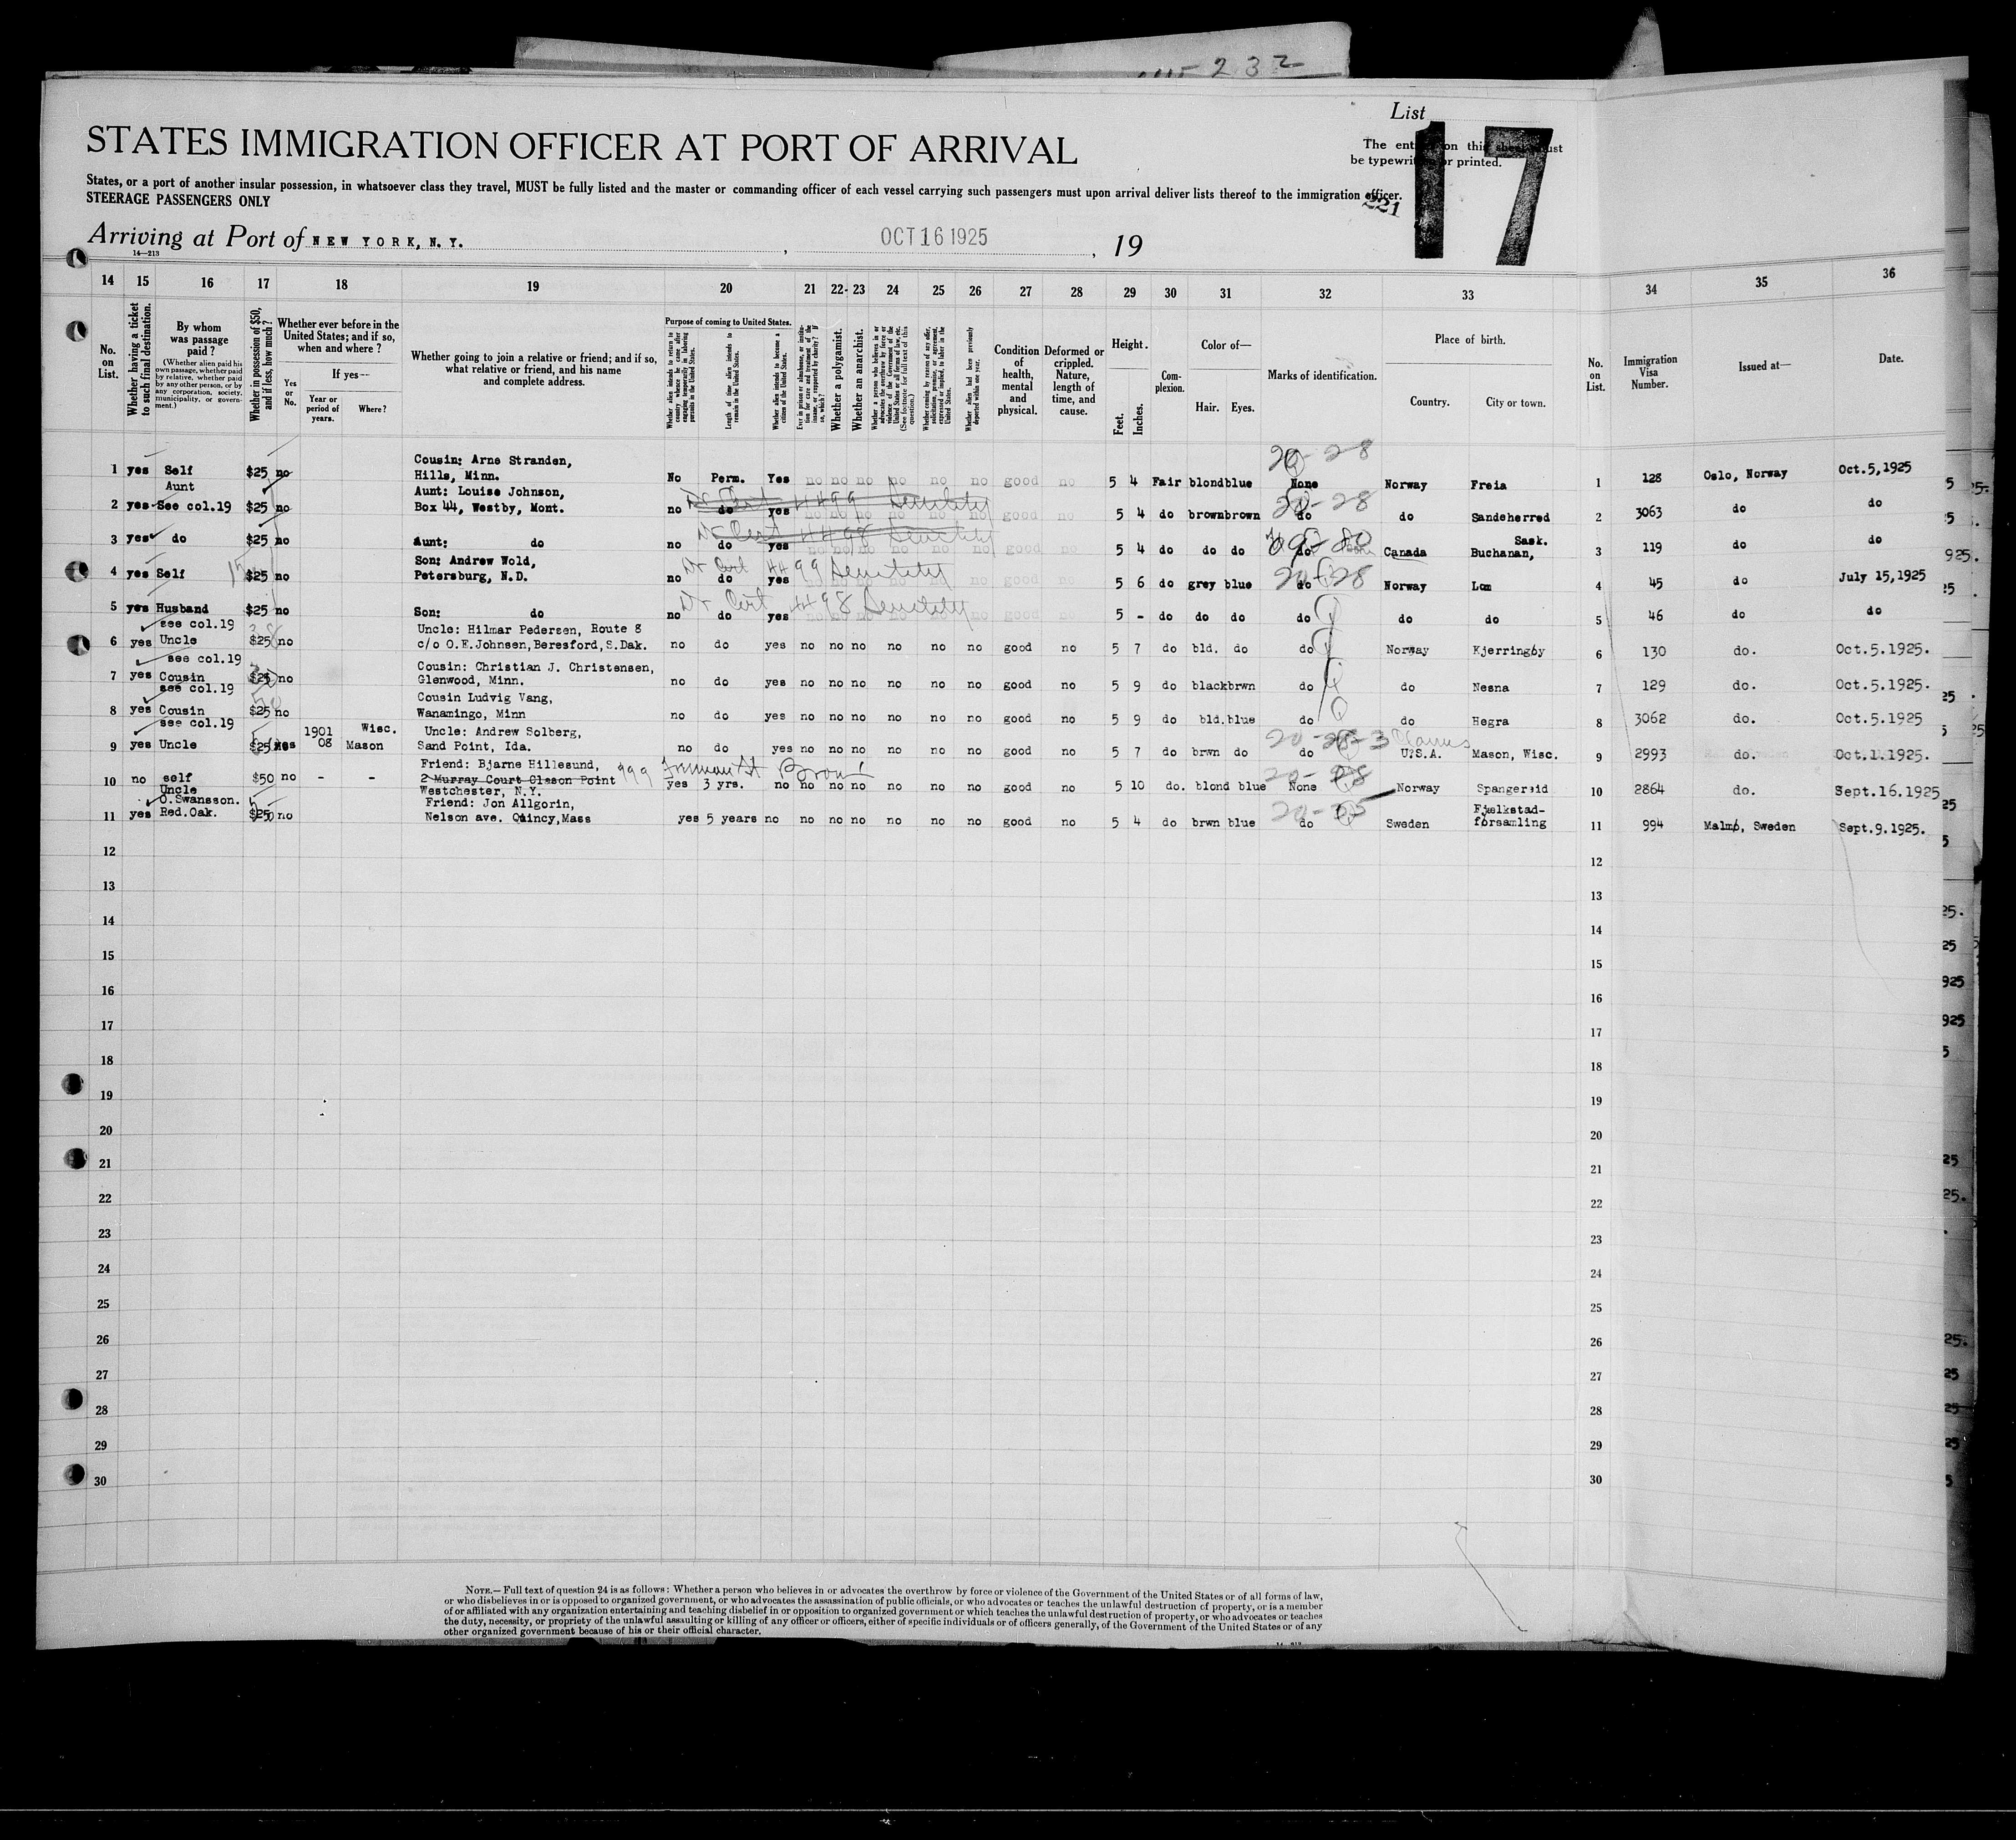 232
List
17
STATES IMMIGRATION OFFICER AT PORT OF ARRIVAL
The entries on this sheet must
be typewritten or printed.
States, or a port of another insular possession, in whatsoever class they travel, MUST be fully listed and the master or commanding officer of each vessel carrying such passengers must upon arrival deliver lists thereof to the immigration officer.
STEERAGE PASSENGERS ONLY
221
Arriving at Port of NEW YORK, N. Y. , OCT 16 1925 , 19
14—213
14 15 16 17 18 19 20 21 22- 23 24 25 26 27 28 29 30 31 32 33 34 35 36
No. on List.
Whether having a ticket to such final destination.
By whom was passage paid?
(Whether alien paid his own passage, whether paid by relative, whether paid by any other person, or by any corporation, society, municipality, or government.)
Whether in possession of $50, and if less, how much?
Whether ever before in the United States; and if so, when and where?
Yes or No.
If yes—
Year or period of years.
Where?
Whether going to join a relative or friend; and if so, what relative or friend, and his name and complete address.
Purpose of coming to United States.
Whether alien intends to return to country whence he came after engaging temporarily in laboring pursuits in the United States.
Length of time alien intends to remain in the United States.
Whether alien intends to become a citizen of the United States.
Ever in prison or almshouse, or institution for care and treatment of the insane, or supported by charity? If so, which?
Whether a polygamist.
Whether an anarchist.
Whether a person who believes in or advocates the overthrow by force or violence of the Government of the United States or all forms of law, etc. (See footnote for full text of this question.)
Whether coming by reason of any offer, solicitation, promise, or agreement, expressed or implied, to labor in the United States.
Whether alien had been previously deported within one year.
Condition of health, mental and physical.
Deformed or crippled. Nature, length of time, and cause.
Height.
Feet.
Inches.
Complexion.
Color of—
Hair. Eyes.
Marks of identification.
Place of birth.
Country. City or town.
No. on List.
Immigration Visa Number.
Issued at—
Date.
1 yes Self $25 no Cousin: Arne Stranden, Hills, Minn. No Perm. Yes no no no no no no good no 5 4 Fair blond blue None 20-28 Norway Freia 1 128 Oslo, Norway Oct.5,1925
2 yes Aunt See col.19 $25 no Aunt: Louise Johnson, Box 44, Westby, Mont. no do yes Dr Cert 4499 Senility no no no no no no good no 5 4 do brown brown do 20-28 do Sandeherred 2 3063 do do
3 yes do $25 no Aunt: do no do yes Dr Cert 4498 Senility no no no no no no good no 5 4 do do do do Canada Buchanan, Sask. 3 119 do do
4 yes Self $25 no Son: Andrew Wold, Petersburg, N.D. no do yes Dr Cert 4499 Senility no good no 5 6 do grey blue do 20-28 Norway Lom 4 45 do July 15,1925
5 yes Husband $25 no Son: do no do yes Dr Cert 4498 Senility no good no 5 - do do do do do do 5 46 do do
6 yes see col.19 Uncle $25 no Uncle: Hilmar Pedersen, Route 8 c/o O.E.Johnsen,Beresford,S.Dak. no do yes no no no no no no good no 5 7 do bld. do do Norway Kjerringöy 6 130 do. Oct.5.1925.
7 yes see col.19 Cousin $25 no Cousin: Christian J. Christensen, Glenwood, Minn. no do yes no no no no no no good no 5 9 do black brwn do do Nesna 7 129 do. Oct.5.1925.
8 yes see col.19 Cousin $25 no Cousin Ludvig Vang, Wanamingo, Minn no do yes no no no no no no good no 5 9 do bld. blue do do Hegra 8 3062 do. Oct.5.1925
9 yes see col.19 Uncle $25 yes 1901 08 Wisc. Mason Uncle: Andrew Solberg, Sand Point, Ida. no do yes no no no no no no good no 5 7 do brwn do do U.S.A. Mason, Wisc. 9 2993 do. Oct.1.1925.
10 no self $50 no - - Friend: Bjarne Hillesund, 2 Murray Court Classon Point Westchester, N.Y. 999 yes 3 yrs. no no no no no no no good no 5 10 do. blond blue None Norway Spangereid 10 2864 do. Sept.16.1925
11 yes Uncle O.Swansson. Red.Oak. $25 no Friend: Jon Allgorin, Nelson ave. Quincy,Mass yes 5 years no no no no no no no good no 5 4 do brwn blue do Sweden Fjelkestad-församling 11 994 Malmö, Sweden Sept.9.1925.
12 12
13 13
14 14
15 15
16 16
17 17
18 18
19 19
20 20
21 21
22 22
23 23
24 24
25 25
26 26
27 27
28 28
29 29
30 30
NOTE.—Full text of question 24 is as follows: Whether a person who believes in or advocates the overthrow by force or violence of the Government of the United States or of all forms of law,
or who disbelieves in or is opposed to organized government, or who advocates the assassination of public officials, or who advocates or teaches the unlawful destruction of property, or is a member
of or affiliated with any organization entertaining and teaching disbelief in or opposition to organized government or which teaches the unlawful destruction of property, or who advocates or teaches
the duty, necessity, or propriety of the unlawful assaulting or killing of any officer or officers, either of specific individuals or of officers generally, of the Government of the United States or of any
other organized government because of his or their official character.